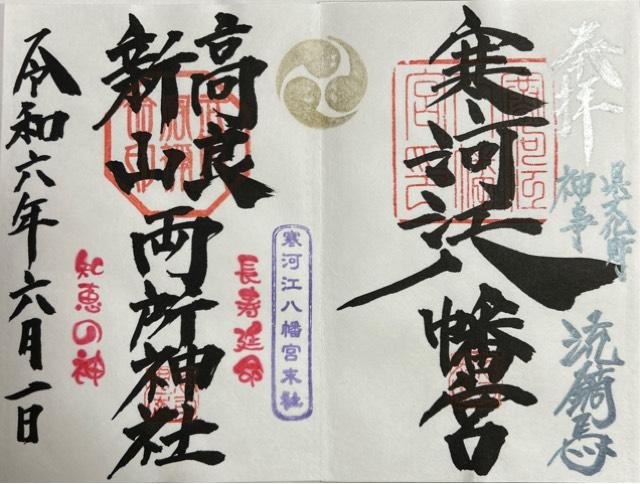 奉拝
県文化財
神事
流鏑馬
寒河江八幡宮
寒河江八幡宮末社
長寿延命
高良
新山
両所神社
知恵の神
令和六年六月一日